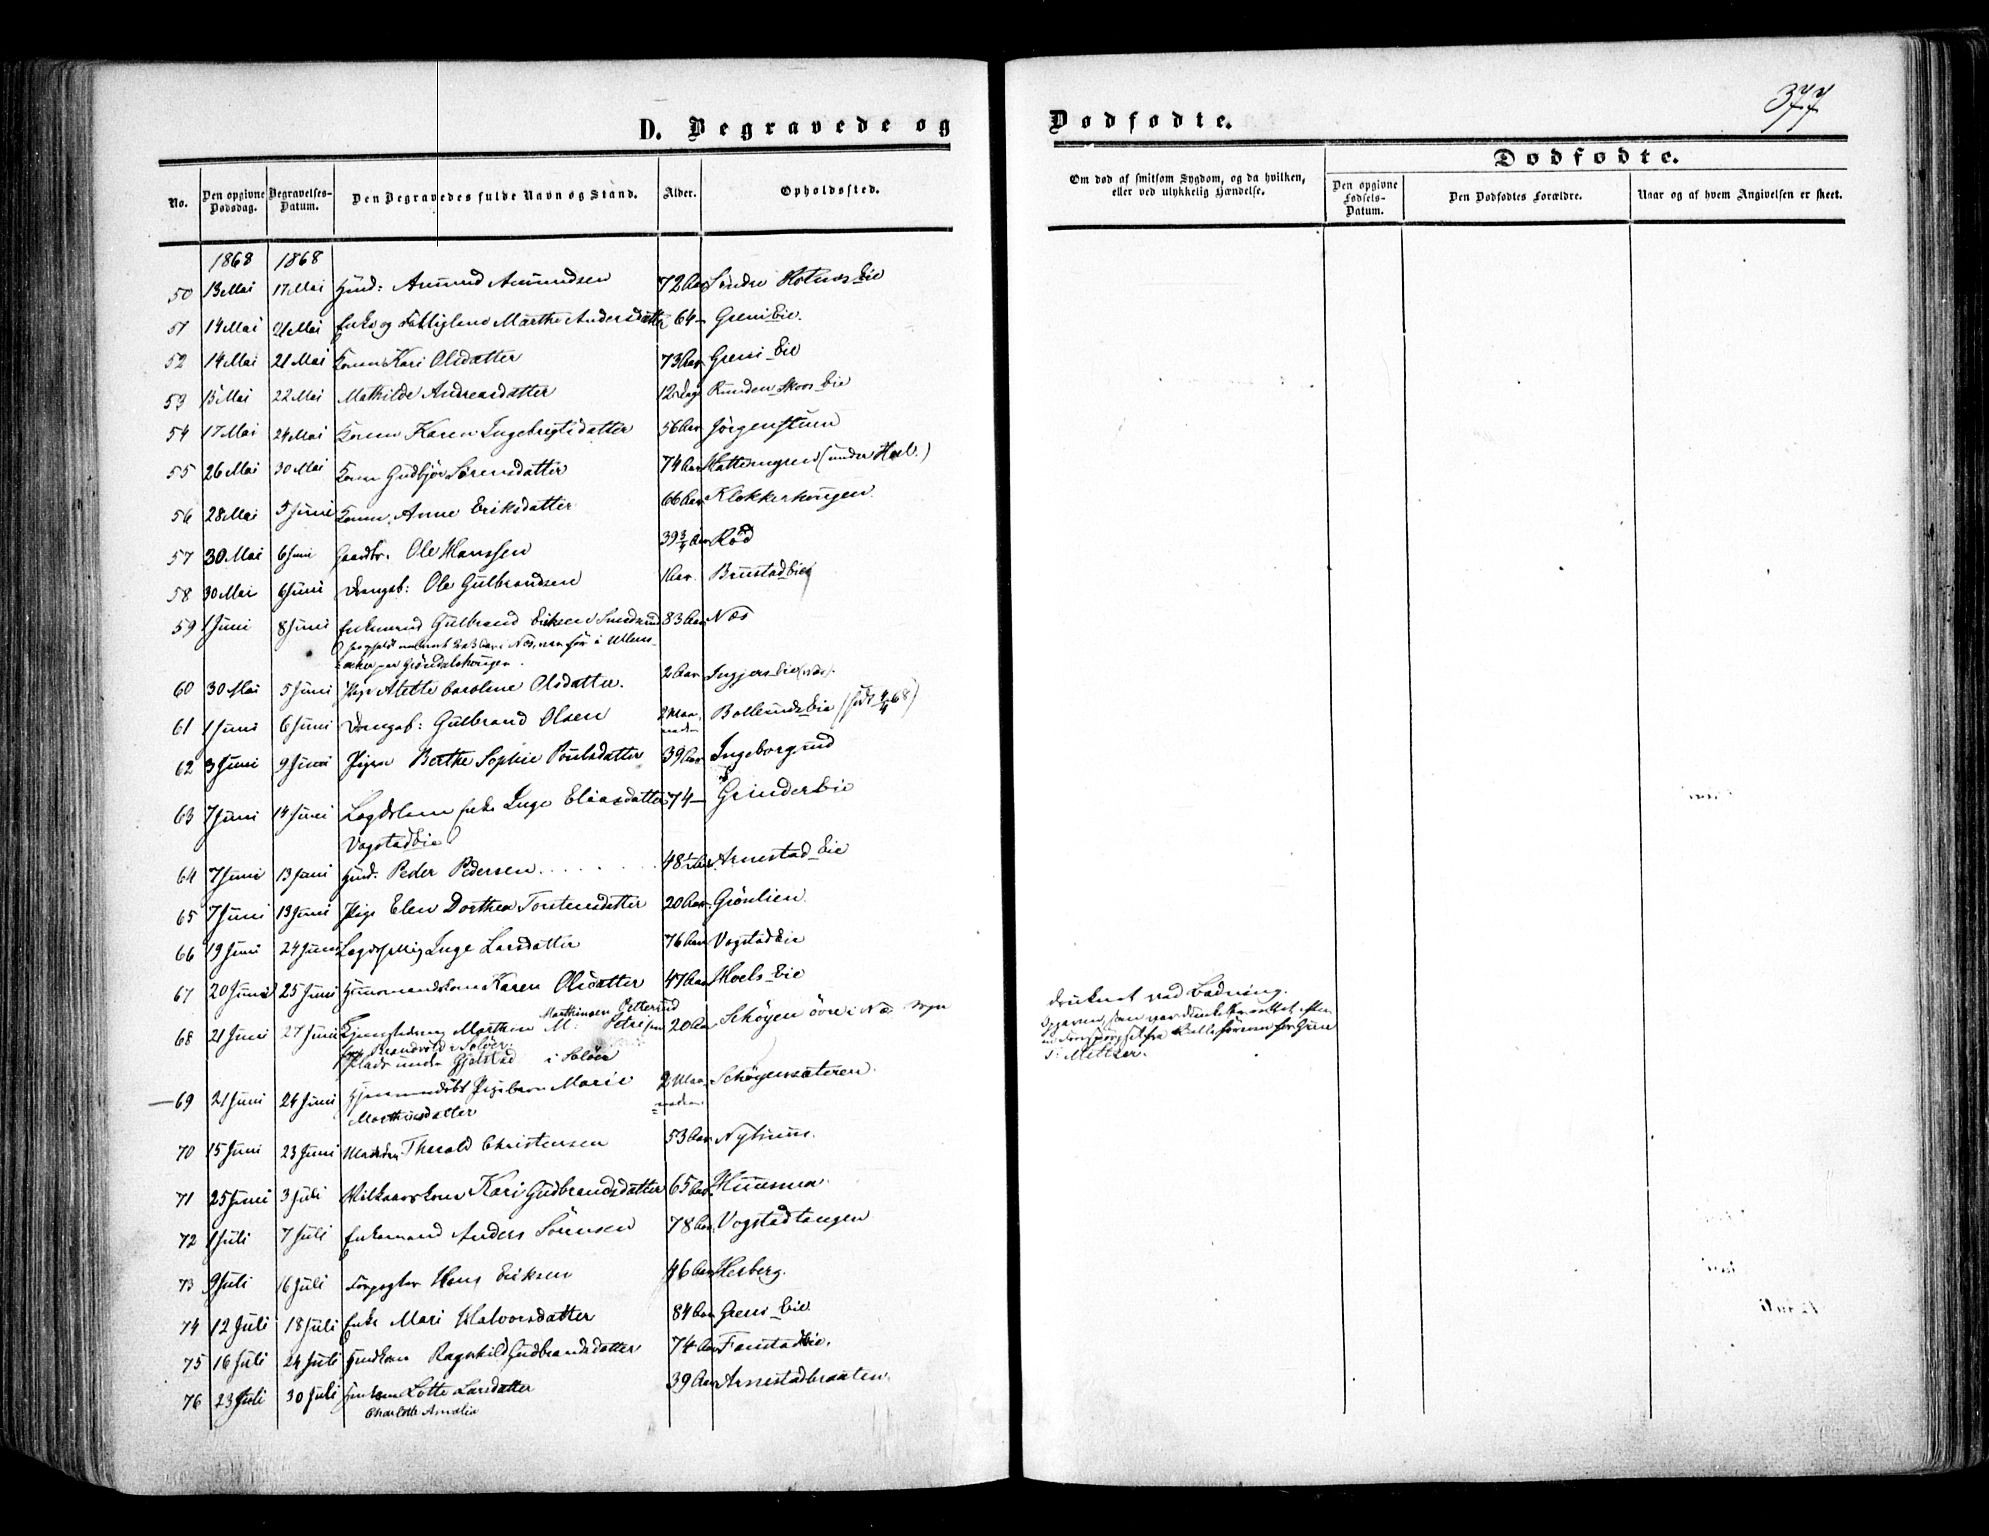 377
D. Begravede og Dødfødte.
No. Den opgivne Dødsdag. Begravelses-Datum. Den Begravedes fulde Navn og Stand. Alder. Opholdssted. Om død af smitsom Sygdom, og da hvilken, eller ved ulykkelig Hændelse. Dødfødte.
Den opgivne Fødsels-Datum. Den Dødfødtes Forældre. Naar og af hvem Angivelsen er skeet.
1868 1868
50 13 Mai 17 Mai Huusd: Amund Amundsen 72 Aar Søndre Eie
51 14 Mai 21 Mai Enke og Marthe Andersdatter 64 — Greni Eie.
52 14 Mai 21 Mai Konen Kari Olsdatter 73 Aar Greni Eie
53 15 Mai 22 Mai Mathilde Andreasdatter 12 Dage Eie
54 17 Mai 24 Mai Konen Karen Ingebretsdatter 56 Aar Jørgenstuen
55 26 Mai 30 Mai Konen Gudbjør Sørensdatter 74 Aar (under Hoel.)
56 28 Mai 5 Juni Konen Anne Eriksdatter 66 Aar Klokkerhougen
57 30 Mai 6 Juni Gaardbr. Ole Hanssen 39 3/4 Aar Rød
58 30 Mai 6 Juni Drengeb: Ole Gulbrandsen 1 Aar. Brustad Eie
59 1 Juni 8 Juni Enkemand Gulbrand Eriksen 83 Aar Næs
60 30 Mai 5 Juni Pige Alette Caroline Olsdatter. 2 Aar
61 1 Juni 6 Juni Drengeb: Gulbrand Olsen 2 Maaneder Eie (født 4/4 68)
62 3 Juni 9 Juni Pigen Berthe Sophie Poulsdatter 39 Aar Ingeborgrud
63 7 Juni 14 Juni Lægdslem Enke Inge Eliasdatter 74 — Grinder Eie
Vogstad Eie
64 7 Juni 13 Juni Huusd. Peder Pedersen 48 1/2 Aar Arnestad Eie
65 7 Juni 13 Juni Pige Elen Dorthea Torstensdatter 20 Aar. Grønlien.
66 19 Juni 24 Juni Inge Larsdatter 76 Aar Vogstad Eie
67 20 Juni 25 Juni Huusmandskone Karen Olsdatter 47 Aar Hoels Eie
68 21 Juni 27 Juni 20 Aar Schøyen øvre i druknet ved Badning.
Plads under Gjelstad i Soløer
69 21 Juni 24 Juni Pigebarn Marie 2 Maaneder. Schøyensæteren.
Martinsdatter
70 15 Juni 23 Juni Tharald Christensen 53 Aar Nystuen.
71 25 Juni 3 Juli Vilkaarskone Kari Gudbrandsdatter 65 Aar Huusmo.
72 1 Juli 7 Juli Enkemand Anders Sørensen 78 Aar. Vogstadtangen
73 9 Juli 16 Juli Forpagter Hans Eriksen 46 Aar Herberg.
74 12 Juli 18 Juli Enke Mari Halvorsdatter 84 Aar Greni Eie.
75 16 Juli 24 Juli Ragnhild Gudbrandsdatter 74 Aar Fonstad Eie.
76 23 Juli 30 Juli Lotte Larsdatter 39 Aar Arnestadbraaten.
Charlotte Amalia